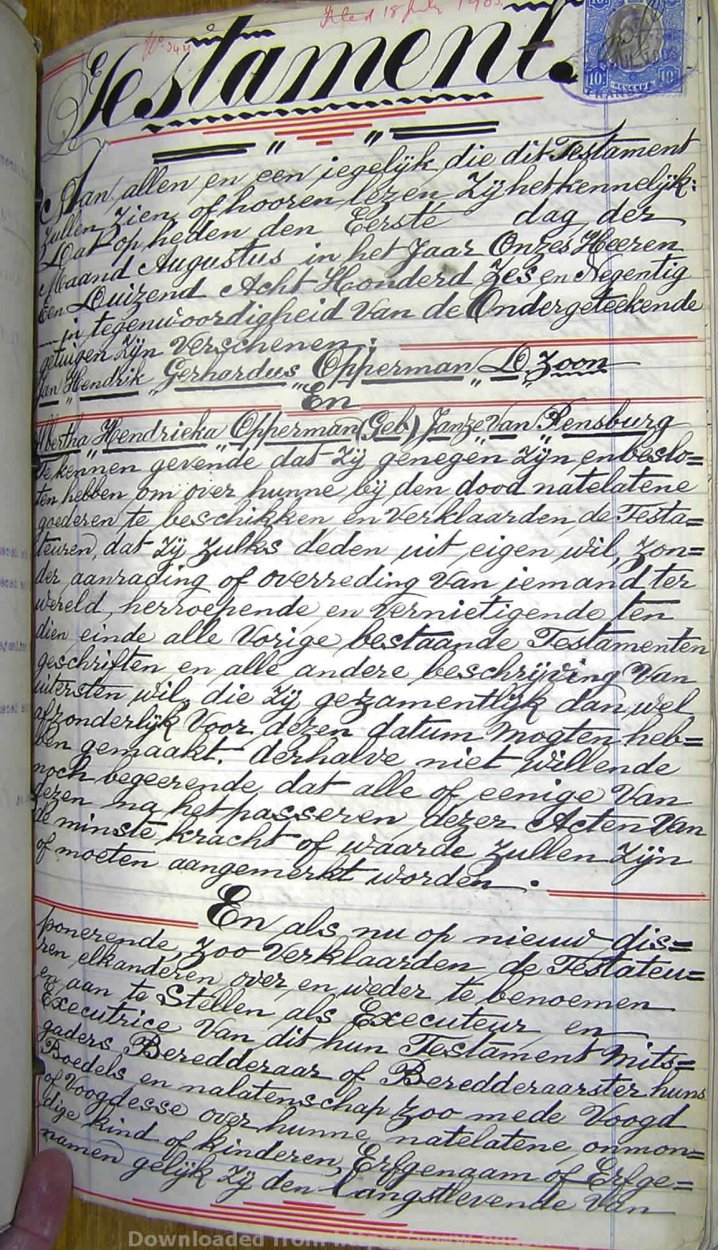 Filed 18 July 1903
Testament.
Aan allen en een iegelijk die dit Testament
zullen zien of hooren lezen Zij het kennelijk:
Dat op heden den Eerste dag der
Maand Augustus in het Jaar Onzes Heeren
Een Duizend Acht Honderd Zes en Negentig
in tegenwoordigheid Van de Ondergeteekende
getuigen zijn Verschenen:
Jan Hendrik Gerhardus Opperman D. Zoon
En
Albertha Hendrieka Opperman (Geb) Janze Van Rensburg
te kennen gevende dat Zij genegen Zijn en beslo=
ten hebben om over hunne bij den dood natelatene
goederen te beschikken en Verklaarden de Testa=
teuren, dat Zij Zulks deden uit eigen wil, zon=
der aanrading of overreding Van iemand ter
wereld, herroepende en Vernietigende ten
dien einde alle Vorige bestaande Testamenten
geschriften en alle andere beschrijving Van
uitersten wil, die Zij gezamentlijk dan wel
afzonderlijk Voor dezen datum Mogten heb=
ben gemaakt. derhalve niet willende
noch begeerende dat alle of eenige Van
dezen na het passeren dezer Acten Van
de minste kracht of waarde Zullen Zijn
of moeten aangemerkt worden.
En als nu op nieuw dis=
ponerende, zoo Verklaarden de Testateu=
ren elkanderen over en weder te benoemen
en aan te Stellen als Executeur en
Executrice Van dit hun Testament Mits=
gaders Beredderaar of Beredderaarster huns
Boedels en nalatenschap zoo mede Voogd
of Voogdesse over hunne natelatene onmon=
dige kind of kinderen, Erfgenaam of Erfge=
namen gelijk Zij den Langstlevende Van
Downloaded from